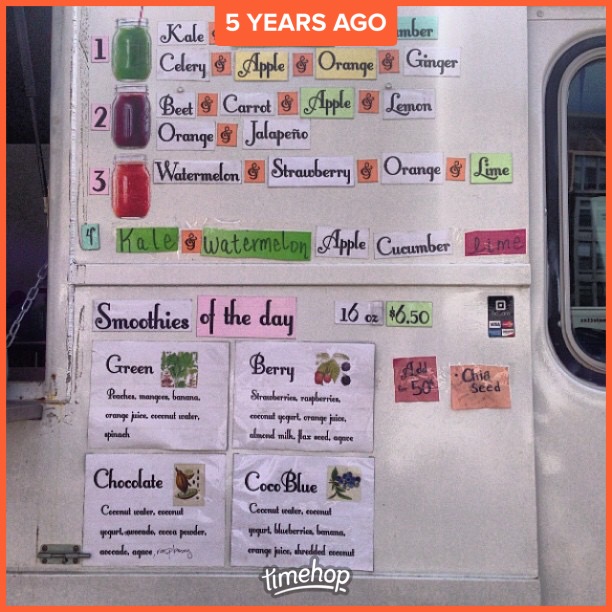 5 YEARS AGO
1 Kale & mber
Celery & Apple & Orange & Ginger
2 Beet & Carrot & Apple & Lemon
Orange & Jalapeño
3 Watermelon & Strawberry & Orange & Lime
4 Kale & Watermelon Apple Cucumber lime
Smoothies of the day 16 oz $6.50
Green
Peaches, mangoes, banana,
orange juice, coconut water,
spinach
Berry
Strawberries, raspberries,
coconut yogurt, orange juice,
almond milk, flax seed, agave
Add
50¢
• Chia
Seed
Chocolate
Coconut water, coconut
yogurt, avocado, cocoa powder,
avocado, agave, raspberry
CocoBlue
Coconut water, coconut
yogurt, blueberries, banana,
orange juice, shredded coconut
timehop